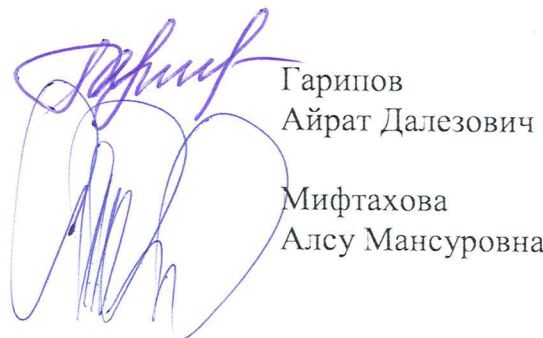 Гарипов
Айрат Далезович
Мифтахова
Алсу Мансуровна